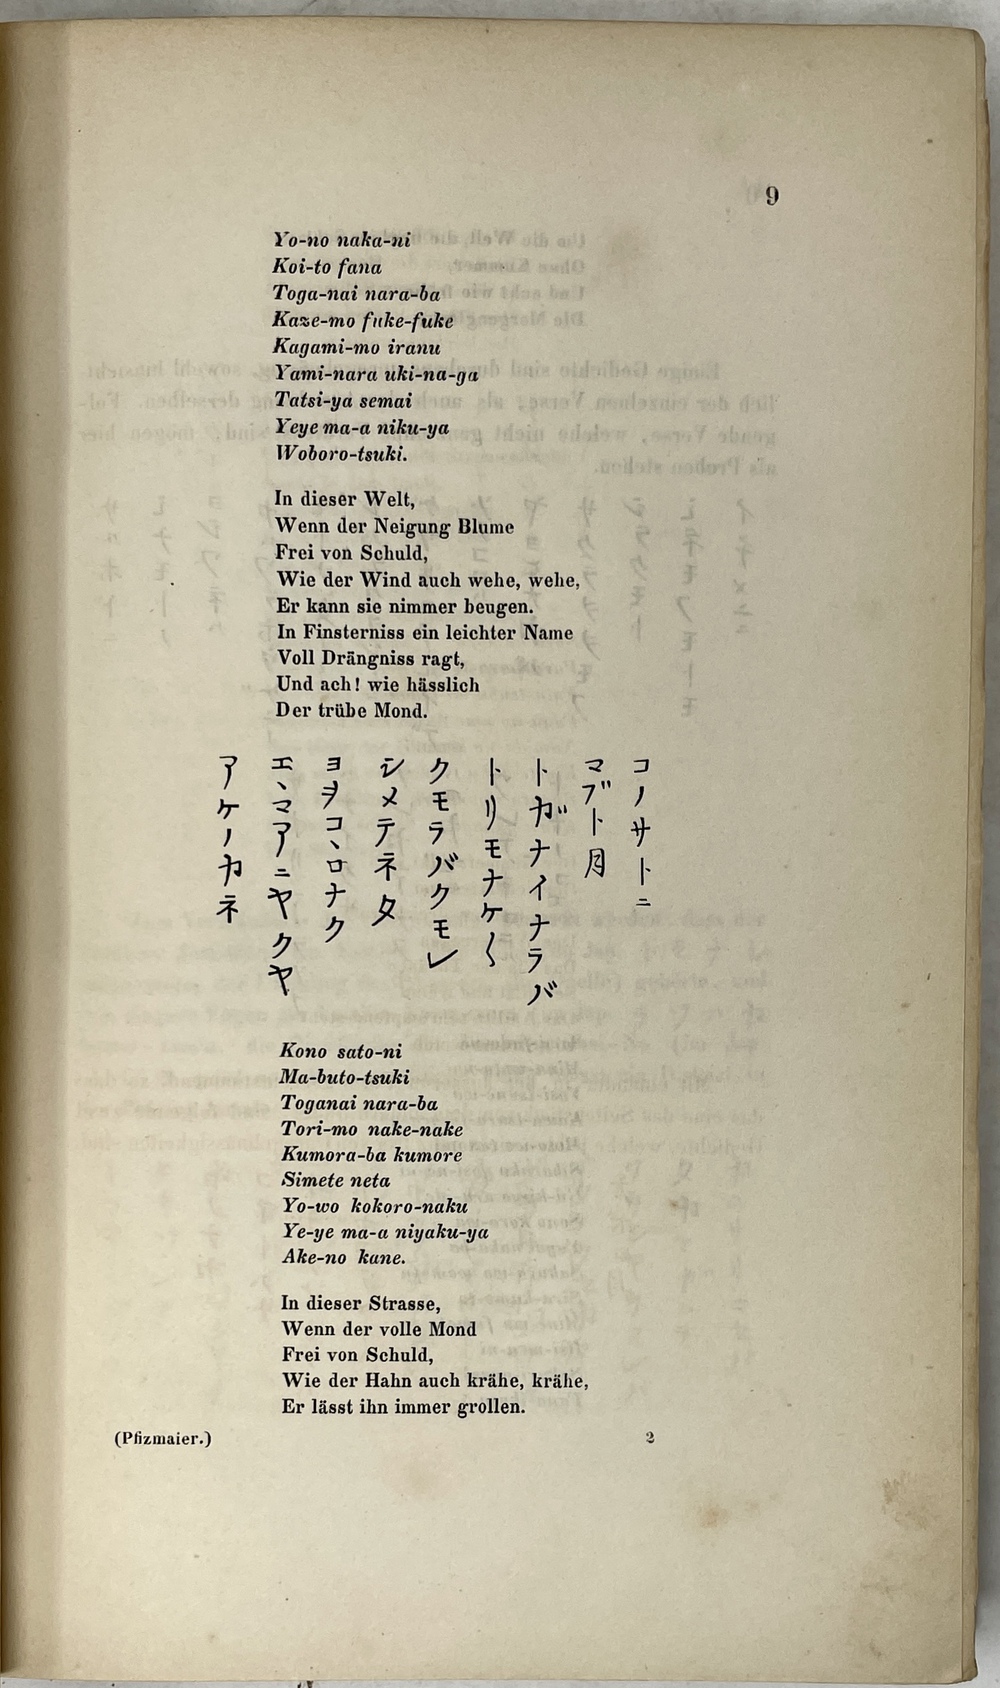 9
Yo-no naka-ni
Koi-to fana
Toga-nai nara-ba
Kaze-mo fuke-fuke
Kagami-mo iranu
Yami-nara uki-na-ga
Tatsi-ya semai
Yeye ma-a niku-ya
Woboro-tsuki.
In dieser Welt,
Wenn der Neigung Blume
Frei von Schuld,
Wie der Wind auch wehe, wehe,
Er kann sie nimmer beugen.
In Finsterniss ein leichter Name
Voll Drängniss ragt,
Und ach! wie hässlich
Der trübe Mond.
コノサトニ
マブト月
トガナイナラバ
トリモナケ〱
クモラバクモレ
シメテネタ
ヨヲコヽロナク
エヽマアニヤクヤ
アケノカネ
Kono sato-ni
Ma-buto-tsuki
Toganai nara-ba
Tori-mo nake-nake
Kumora-ba kumore
Simete neta
Yo-wo kokoro-naku
Ye-ye ma-a niyaku-ya
Ake-no kane.
In dieser Strasse,
Wenn der volle Mond
Frei von Schuld,
Wie der Hahn auch krähe, krähe,
Er lässt ihn immer grollen.
(Pfizmaier.) 2